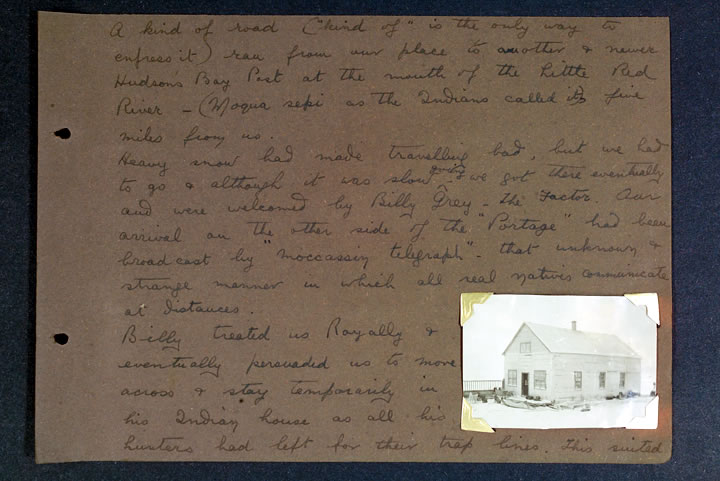 A kind of road ("kind of" is the only way to
express it) ran from our place to another & newer
Hudson's Bay Post at the mouth of the Little Red
River – (Moqua sepi as the Indians called it) five
miles from us.
Heavy snow had made travelling bad, but we had
to go & although it was slow going we got there eventually
and were welcomed by Billy Gray – the Factor. Our
arrival on the other side of the "Portage" had been
broadcast by "moccassin telegraph" – that unknown &
strange manner in which all real natives communicate
at distances.
Billy treated us Royally &
eventually persuaded us to move
across & stay temporarily in
his Indian house as all his
hunters had left for their trap lines. This suited